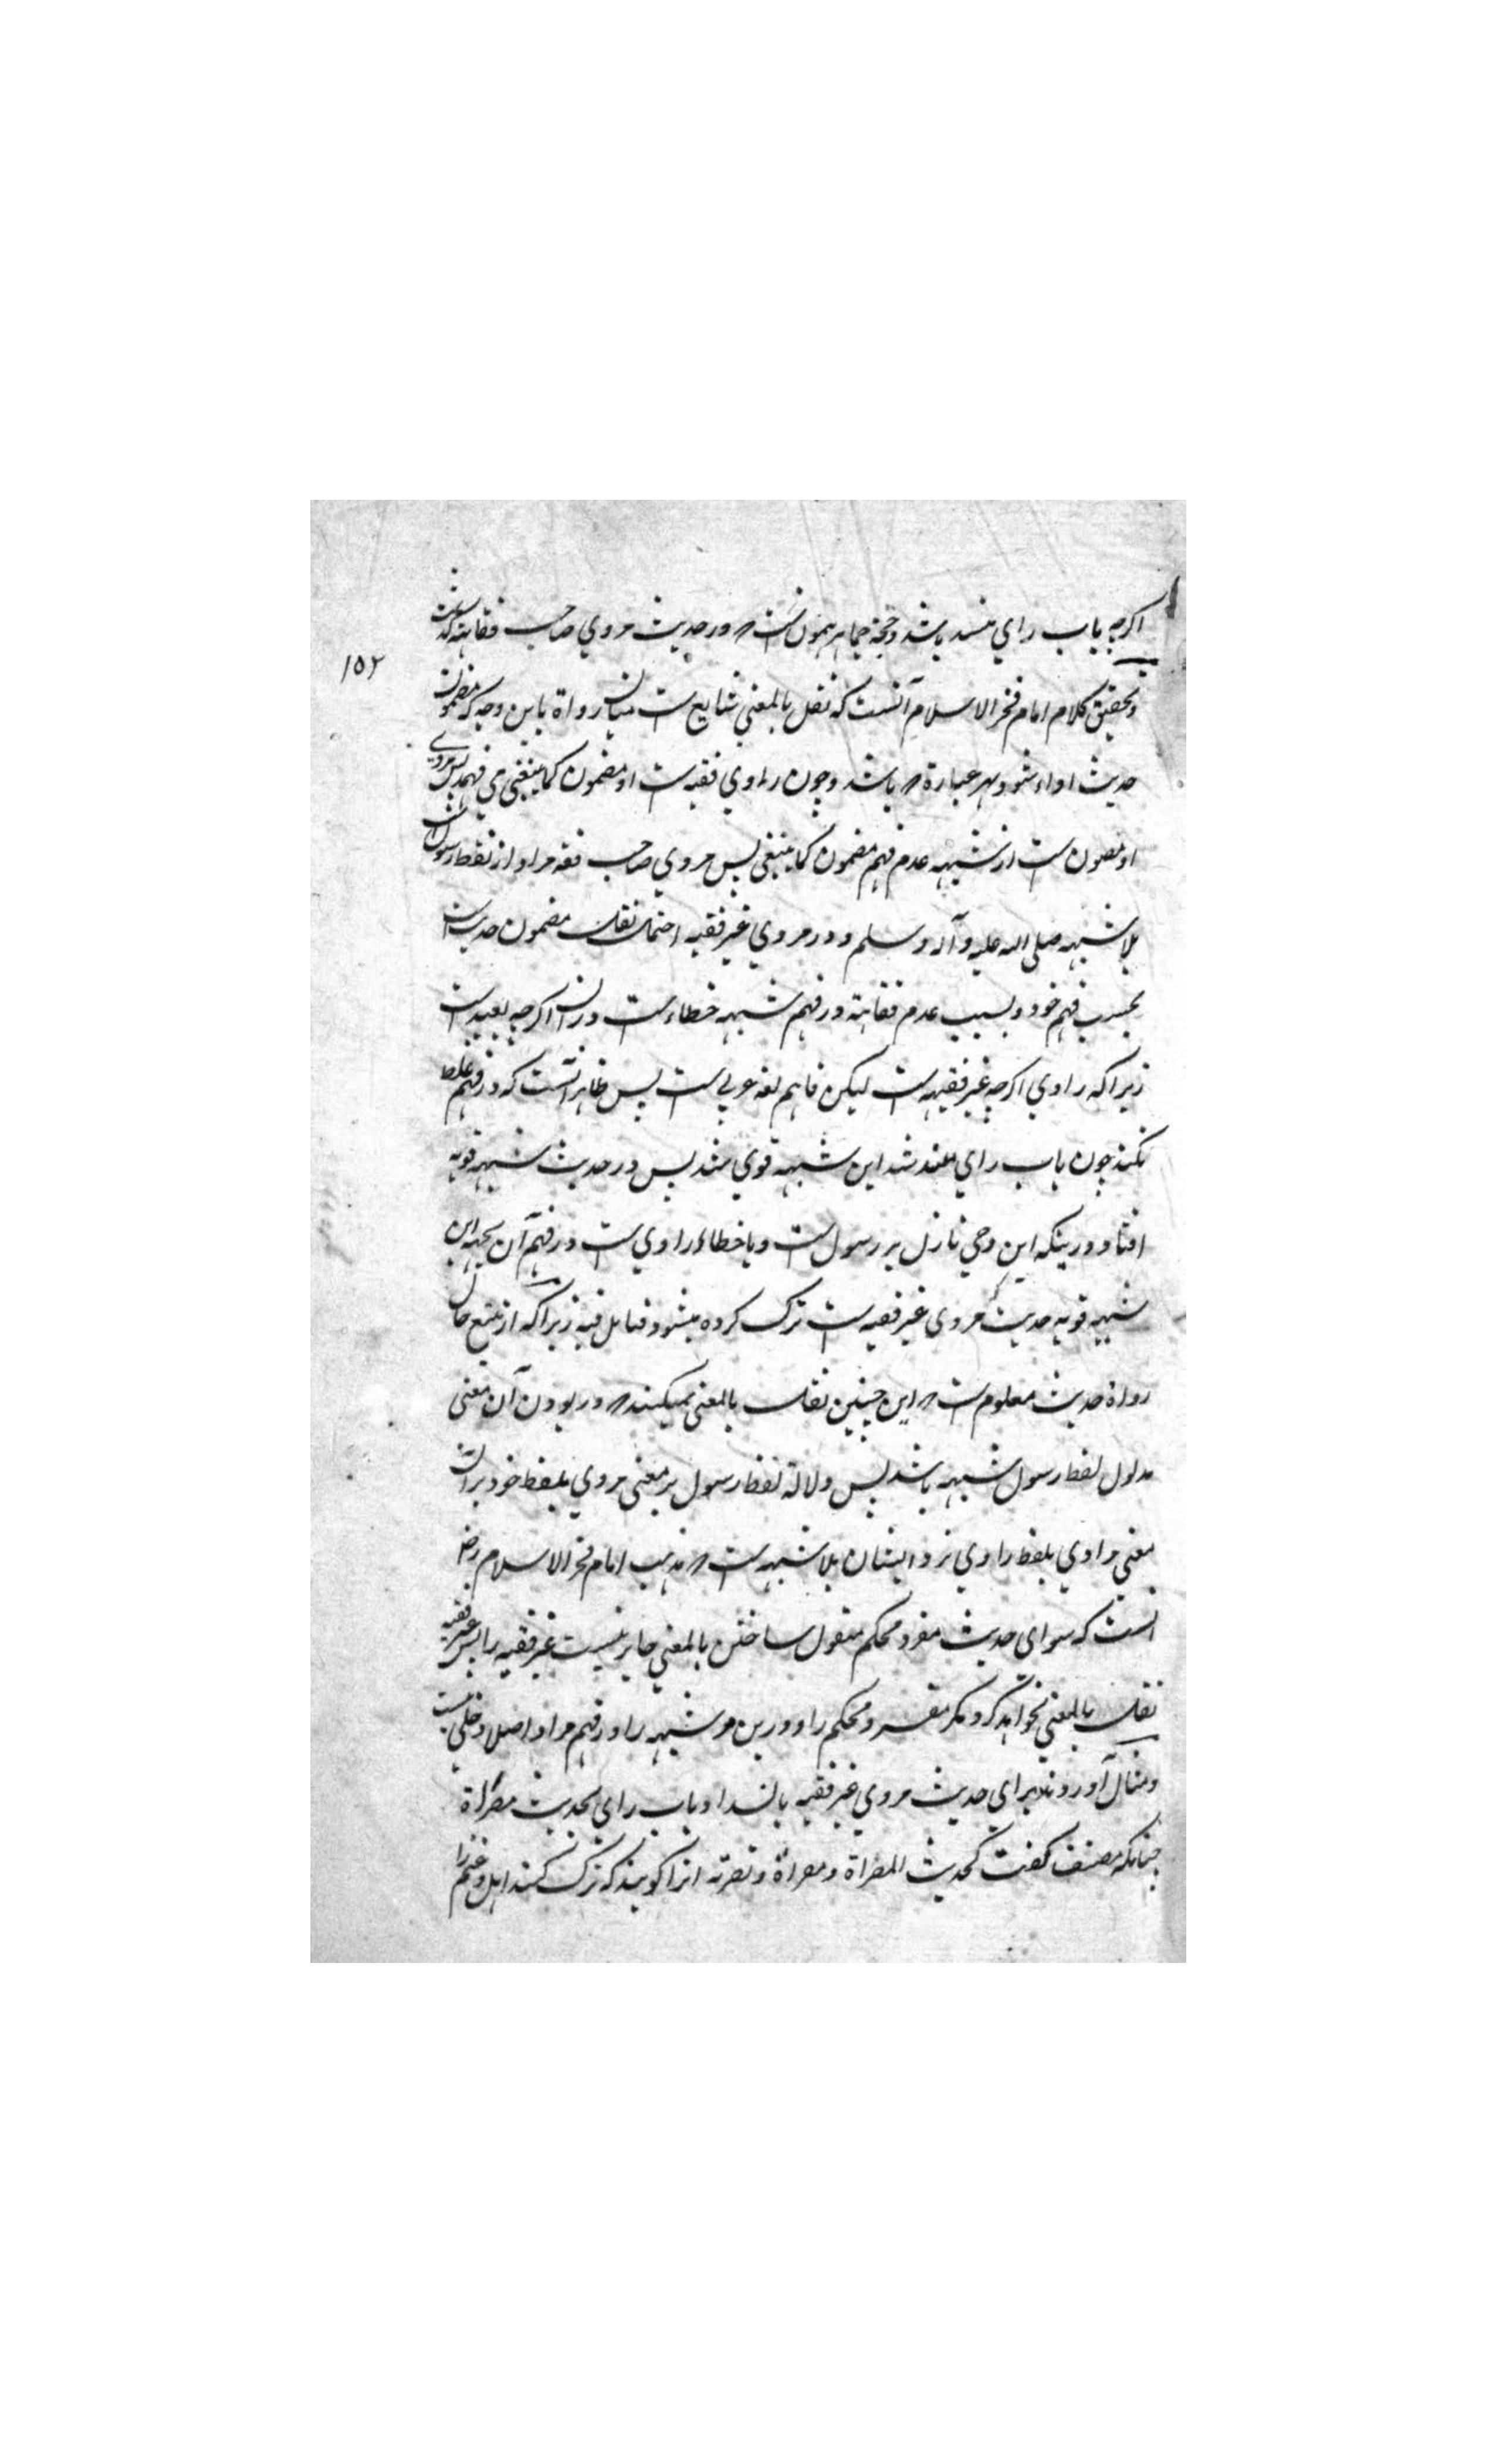 اکرچه باب راي منسد باشد و حجة جماهیر همون ست که در حدیث مروي صاحب فقاهة گذشت
۱۵۲
و تحقیق کلام امام فخر الاسلام آنست که نقل بالمعني شایع ست میان رواة باین وجه که مضمون
حدیث اداء شود بهر عبارة که باشد و چون راوي فقیه ست او مضمون کما ینبغي مي فهمد پس مروي
او مصون ست از شبهه عدم فهم مضمون کما ینبغي پس مروي صاحب فقه مراد از لفظ رسول ست
بلا شبهه صلی الله علیه و آله و سلم و در مروي غیر فقیه احتمال نقل مضمون حدیث ست
بحسب فهم خود و بسبب عدم فقاهة در فهم شبهه خطاء ست در ان اکرچه بعید ست
زیرا که راوي اکرچه غیر فقیه ست لیکن فاهم لغة عربي ست پس ظاهر آنست که در فهم غلط
نکند چون باب راي منسد شد این شبهه قوي شد پس در حدیث شبهه قویه
افتاد درینکه این وحي نازل بر رسول ست و یا خطاء راوي ست در فهم آن بجهة این
شبهه قویه حدیث که مروي غیر فقیه ست ترک کرده میشود فتامل فیه زیرا که از تتبع حال
رواة حدیث معلوم ست که این چنین نقل بالمعني نمیکنند که در بودن آن معنی
مدلول لفظ رسول شبهه باشد پس دلالة لفظ رسول بر معنی مروي بلفظ خود بران
معني مراوي بلفظ راوي نزد ایشان بلا شبهه ست که مذهب امام فخر الاسلام رض
آنست که سواي حدیث مفرد محکم منقول ساختن بالمعني جایز نیست غیر فقیه را پس غیر فقیه
نقل بالمعني نخواهد کرد مکر مفسر و محکم را و درین مر شبهه را در فهم مراد اصلا دخلي نیست
و مثال آوردند براي حدیث مروي غیر فقیه بانسداد باب راي بحدیث مصراة
چنانکه مصنف گفت کحدیث المصراة و مصراة و تصریه انرا گویند که ترک کنند ابل و غنم را